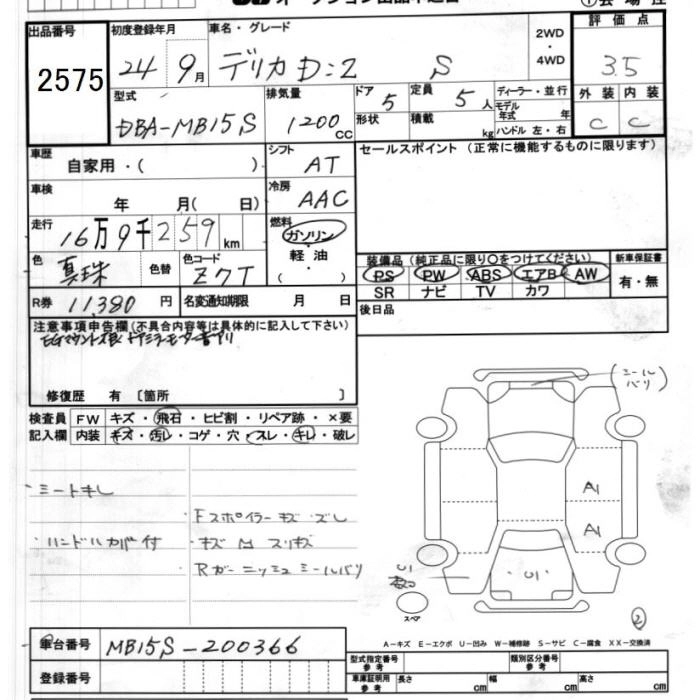 出品番号 2575
初度登録年月 24 9月
車名・グレード デリカD:2 S
2WD・4WD
評価点 3.5
型式 DBA-MB15S
排気量 1200 CC
ドア 5
形状
定員 5 人
積載 kg
ディーラー・並行
モデル年式 年
ハンドル 左・右
外装 内装
C C
車歴 自家用・( )
シフト AT
セールスポイント (正常に機能するものに限ります)
車検 年 月( 日)
冷房 AAC
走行 16万9千259 km
燃料 ガソリン・軽油・( )
色 真珠 色替
色コード Z7T
装備品 (純正品に限り○をつけてください)
PS PW ABS エアB AW
SR ナビ TV カワ
新車保証書 有・無
R券 11,380 円
名変通知期限 月 日
後日品
注意事項申告欄(不具合内容等は具体的に記入して下さい)
EGマウント不良 ドアミラーモーター音アリ
修復歴 有 [箇所 ]
検査員記入欄
FW キズ・飛石・ヒビ割・リペア跡・×要
内装 キズ・汚レ・コゲ・穴・スレ・キレ・破レ
シートキレ
Fスポイラー キズ ズレ
ハンドルカバー付
キズ M スリキズ
Rガーニッシュ シールバリ
(シールバリ)
A1
A1
U1
U1
スペア
2
車台番号 MB15S-200366
登録番号
A-キズ E-エクボ U-凹み W-補修跡 S-サビ C-腐食 XX-交換済
型式指定番号 参考
類別区分番号 参考
車庫証明用 参考 長さ cm 幅 cm 高さ cm